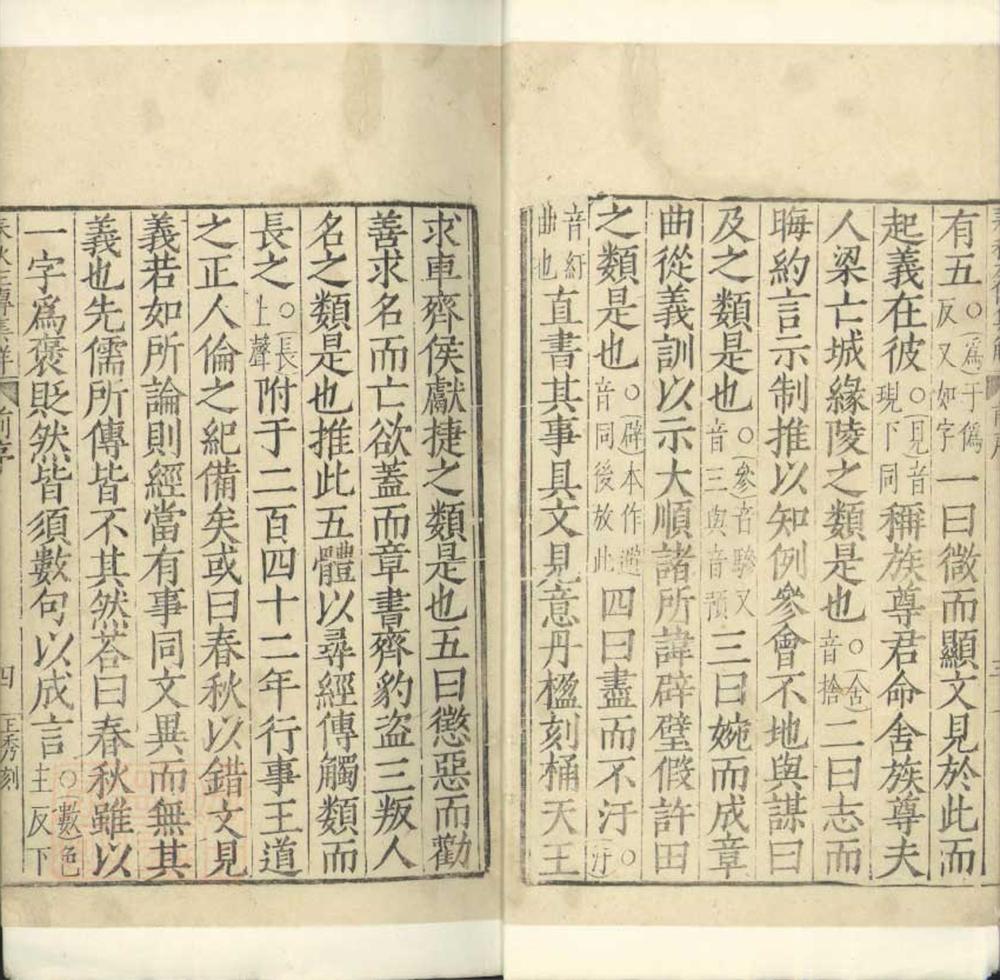 有五○爲于僞反又如字一曰微而顯文見於此而
起義在彼○見音現下同稱族尊君命舍族尊夫
人梁亡城緣陵之類是也○舍音捨二曰志而
晦約言示制推以知例參會不地與謀曰
及之類是也○參音驂又音三與音預三曰婉而成章
曲從義訓以示大順諸所諱辟璧假許田
之類是也○辟本作避音同後放此四曰盡而不汙○汙
音紆曲也直書其事具文見意丹楹刻桷天王
求車齊侯獻捷之類是也五曰懲惡而勸
善求名而亡欲蓋而章書齊豹盜三叛人
名之類是也推此五體以尋經傳觸類而
長之○長上聲附于二百四十二年行事王道
之正人倫之紀備矣或曰春秋以錯文見
義若如所論則經當有事同文異而無其
義也先儒所傳皆不其然荅曰春秋雖以
一字爲褒貶然皆須數句以成言○數色主反下
春秋左傳集解 前序 四 王秀刻